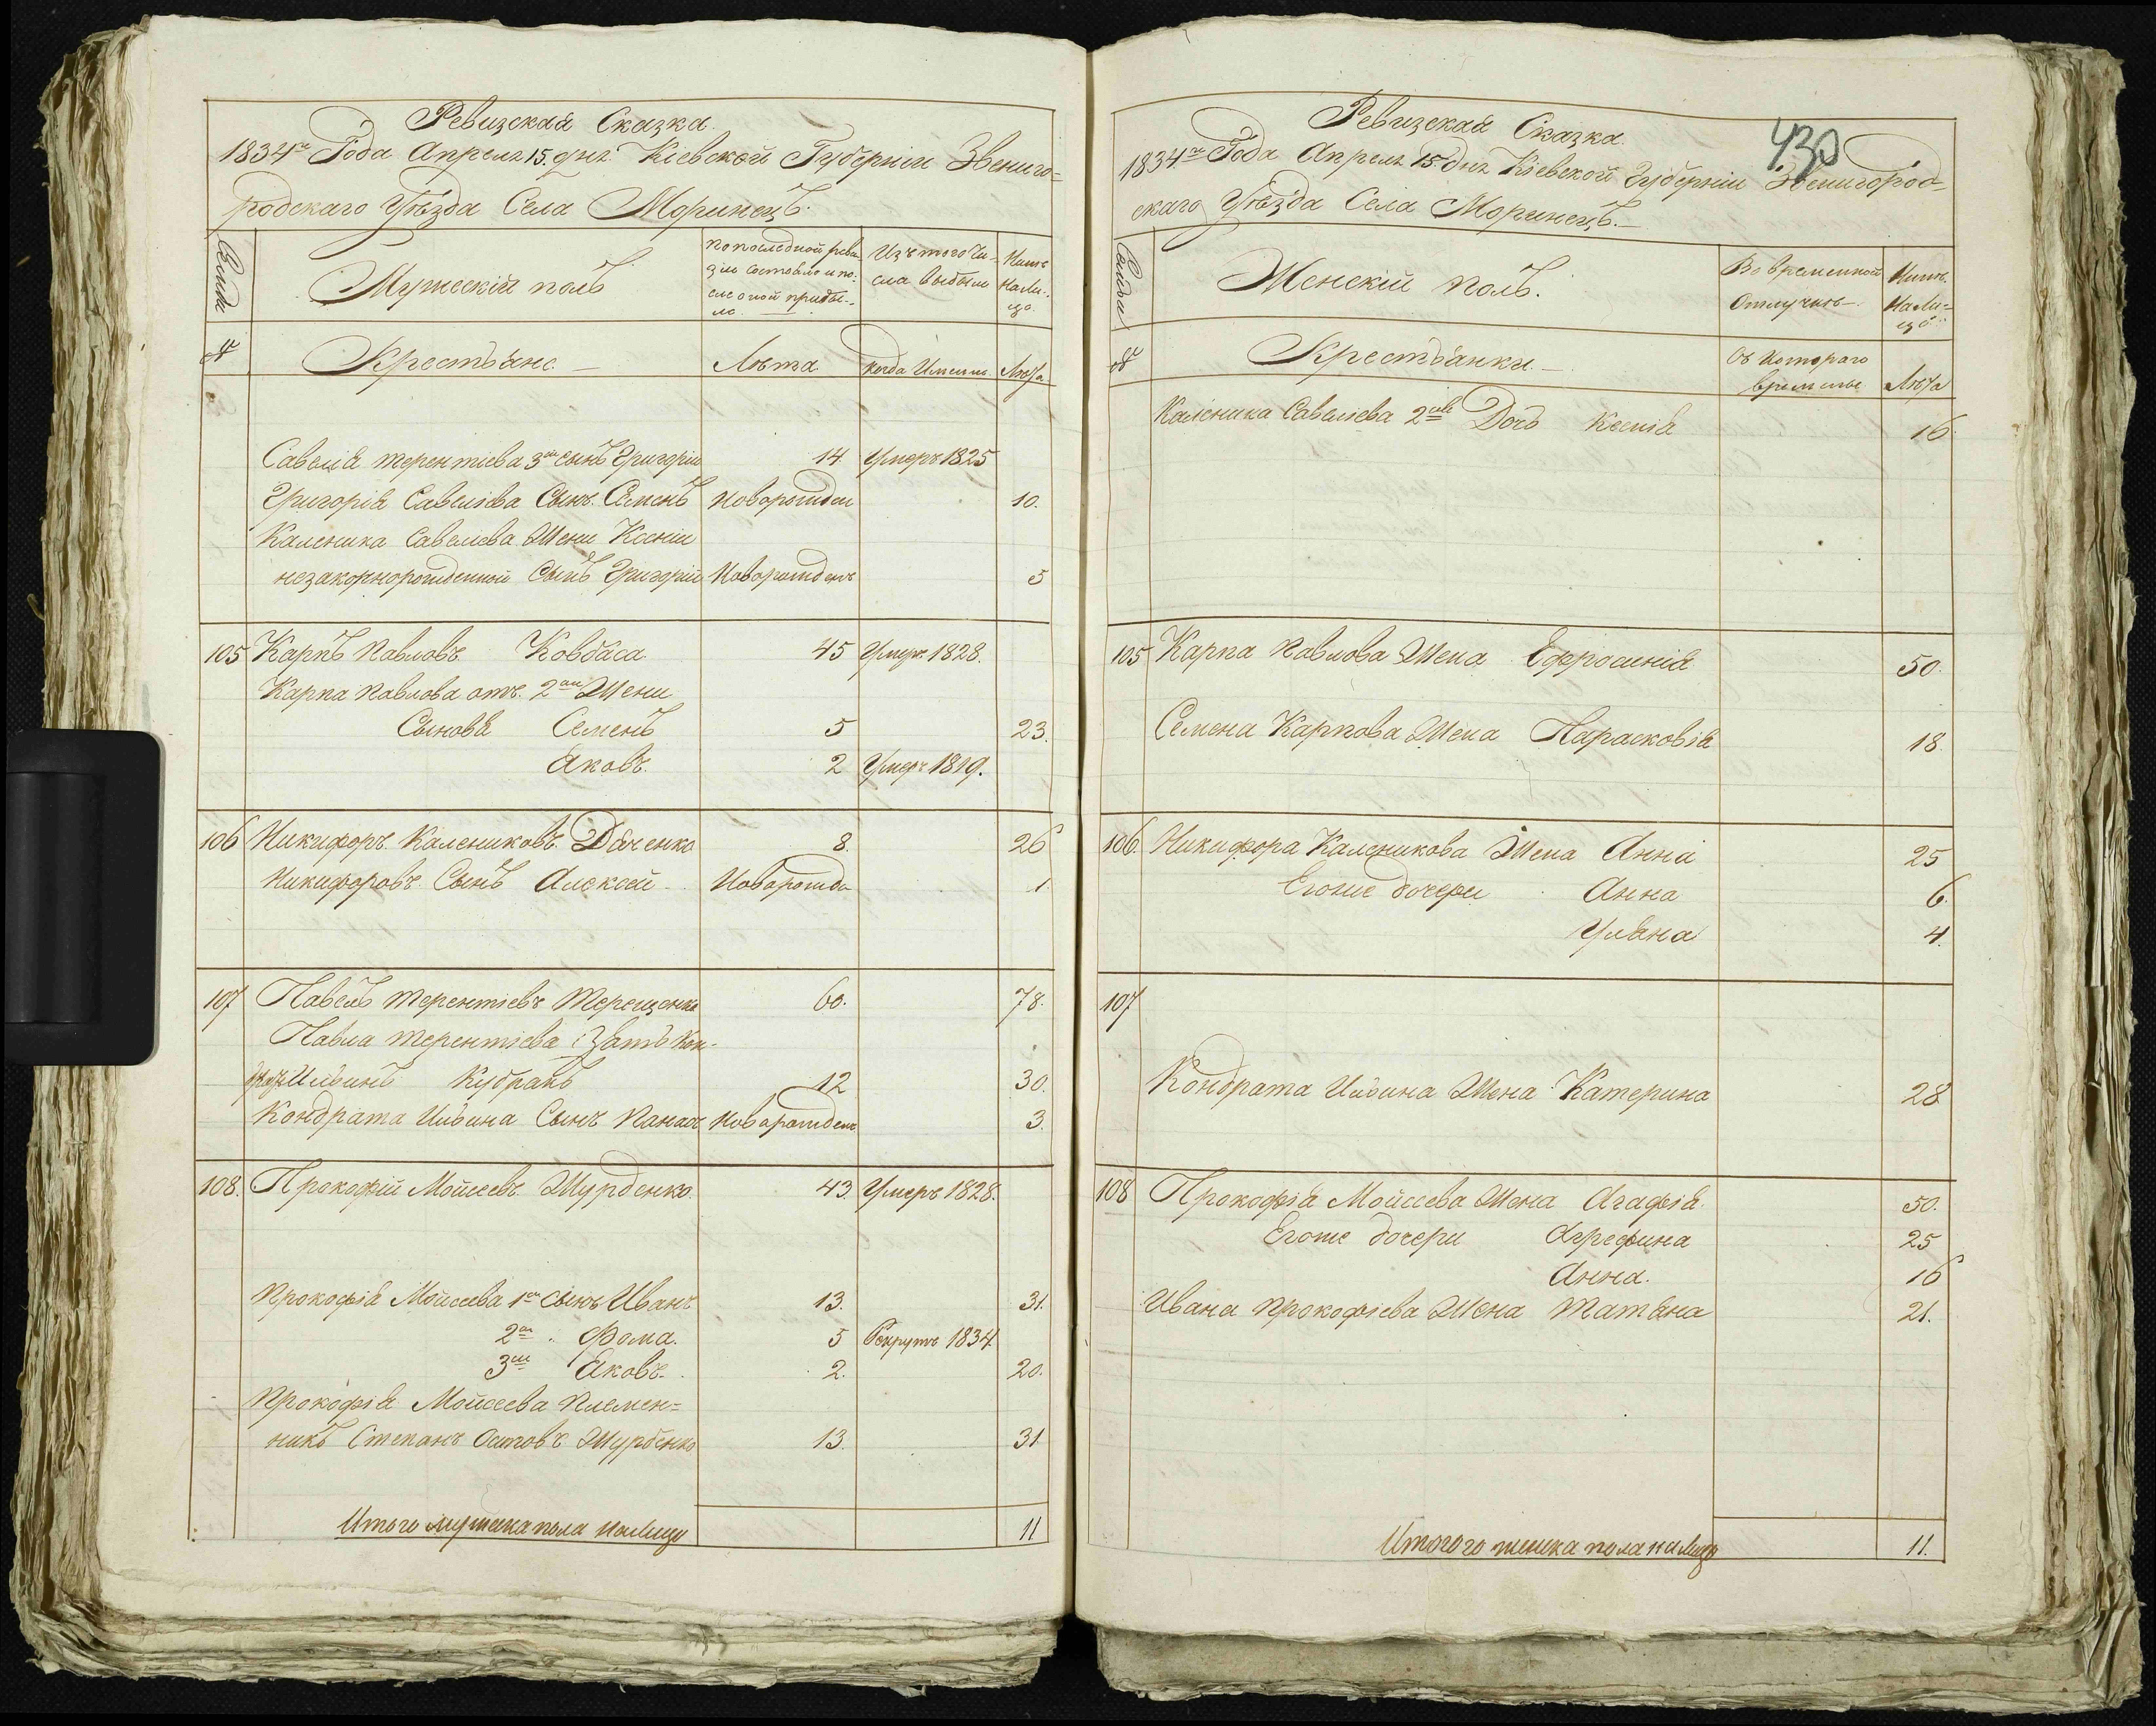 Ревизская Сказка.
1834го Года Апреля 15 дня. Кіевской Губерніи Звениго=
родскаго Уѣзда Села Моринецъ.
Семьи
Мужескій полъ
По последной реви
зіи состояло и по-
сле оной прибы-
ло.
Изъ того чи-
сла выбыли
Нынѣ
на ли-
цо.
№
Крестьяне.
Лѣта
когда имянно
Лѣта
Савелія Терентіева 3й сынъ Григорій 14 Умеръ 1825
Григорія Савеліева Сынъ Семенъ Новорожден 10.
Каленика Савелиева Жени Ксеніи
незаконорожденной Сынъ Григорій Новорожденъ 5
105 Карпъ Павловъ Ковбаса 45 Умеръ 1828.
Карпа Павлова отъ 2ой Жени
Сыновя Семенъ 5 23.
Яковъ. 2 Умеръ 1819.
106 Никифоръ Калениковъ Дяченко 8. 26
Никифоровъ Сынъ Алексей Новорожде 1
107 Павелъ Терентіевъ Терещенко 60. 78.
Павла Терентіева Зять Кон-
дратъ Ильинъ Кудракъ 12 30.
Кондрата Ильина Сынъ Панасъ Новорожденъ 3.
108. Прокофій Мойсеевъ Журденко 43. Умеръ 1828.
Прокофія Мойсеева 1й сынъ Иванъ 13. 31.
2й Фома. 5 Рекрутъ 1834.
3й Яковъ. 2. 20.
Прокофія Мойсеева Племен=
никъ Степанъ Осиповъ Журденко 13. 31
Итого мужеска пола налицо 11
430
Ревизская Сказка.
1834го Года Апреля 15 дня Кіевской Губерніи Звенигород-
скаго Уѣзда Села Моринецъ.
Семьи
Женскій полъ.
Во временной
отлучкѣ
Нынѣ
на ли=
цо
№
Крестьянки.
Съ котораго
времени
Лѣта
Каленика Савелиева 2я Дочь Ксенія 16.
105 Карпа Павлова Жена Ефросинія 50.
Семена Карпова Жена Парасковія 18.
106. Никифора Каленикова Жена Анна 25
Егоже дочери Анна 6.
Уляна 4.
107
Кондрата Ильина Жена Катерина 28
108 Прокофія Мойсеева Жена Агафія. 50.
Егоже дочери Агрефина 25
Анна. 16
Ивана Прокофіева Жена Татяна 21.
Итогого женска пола налицо 11.